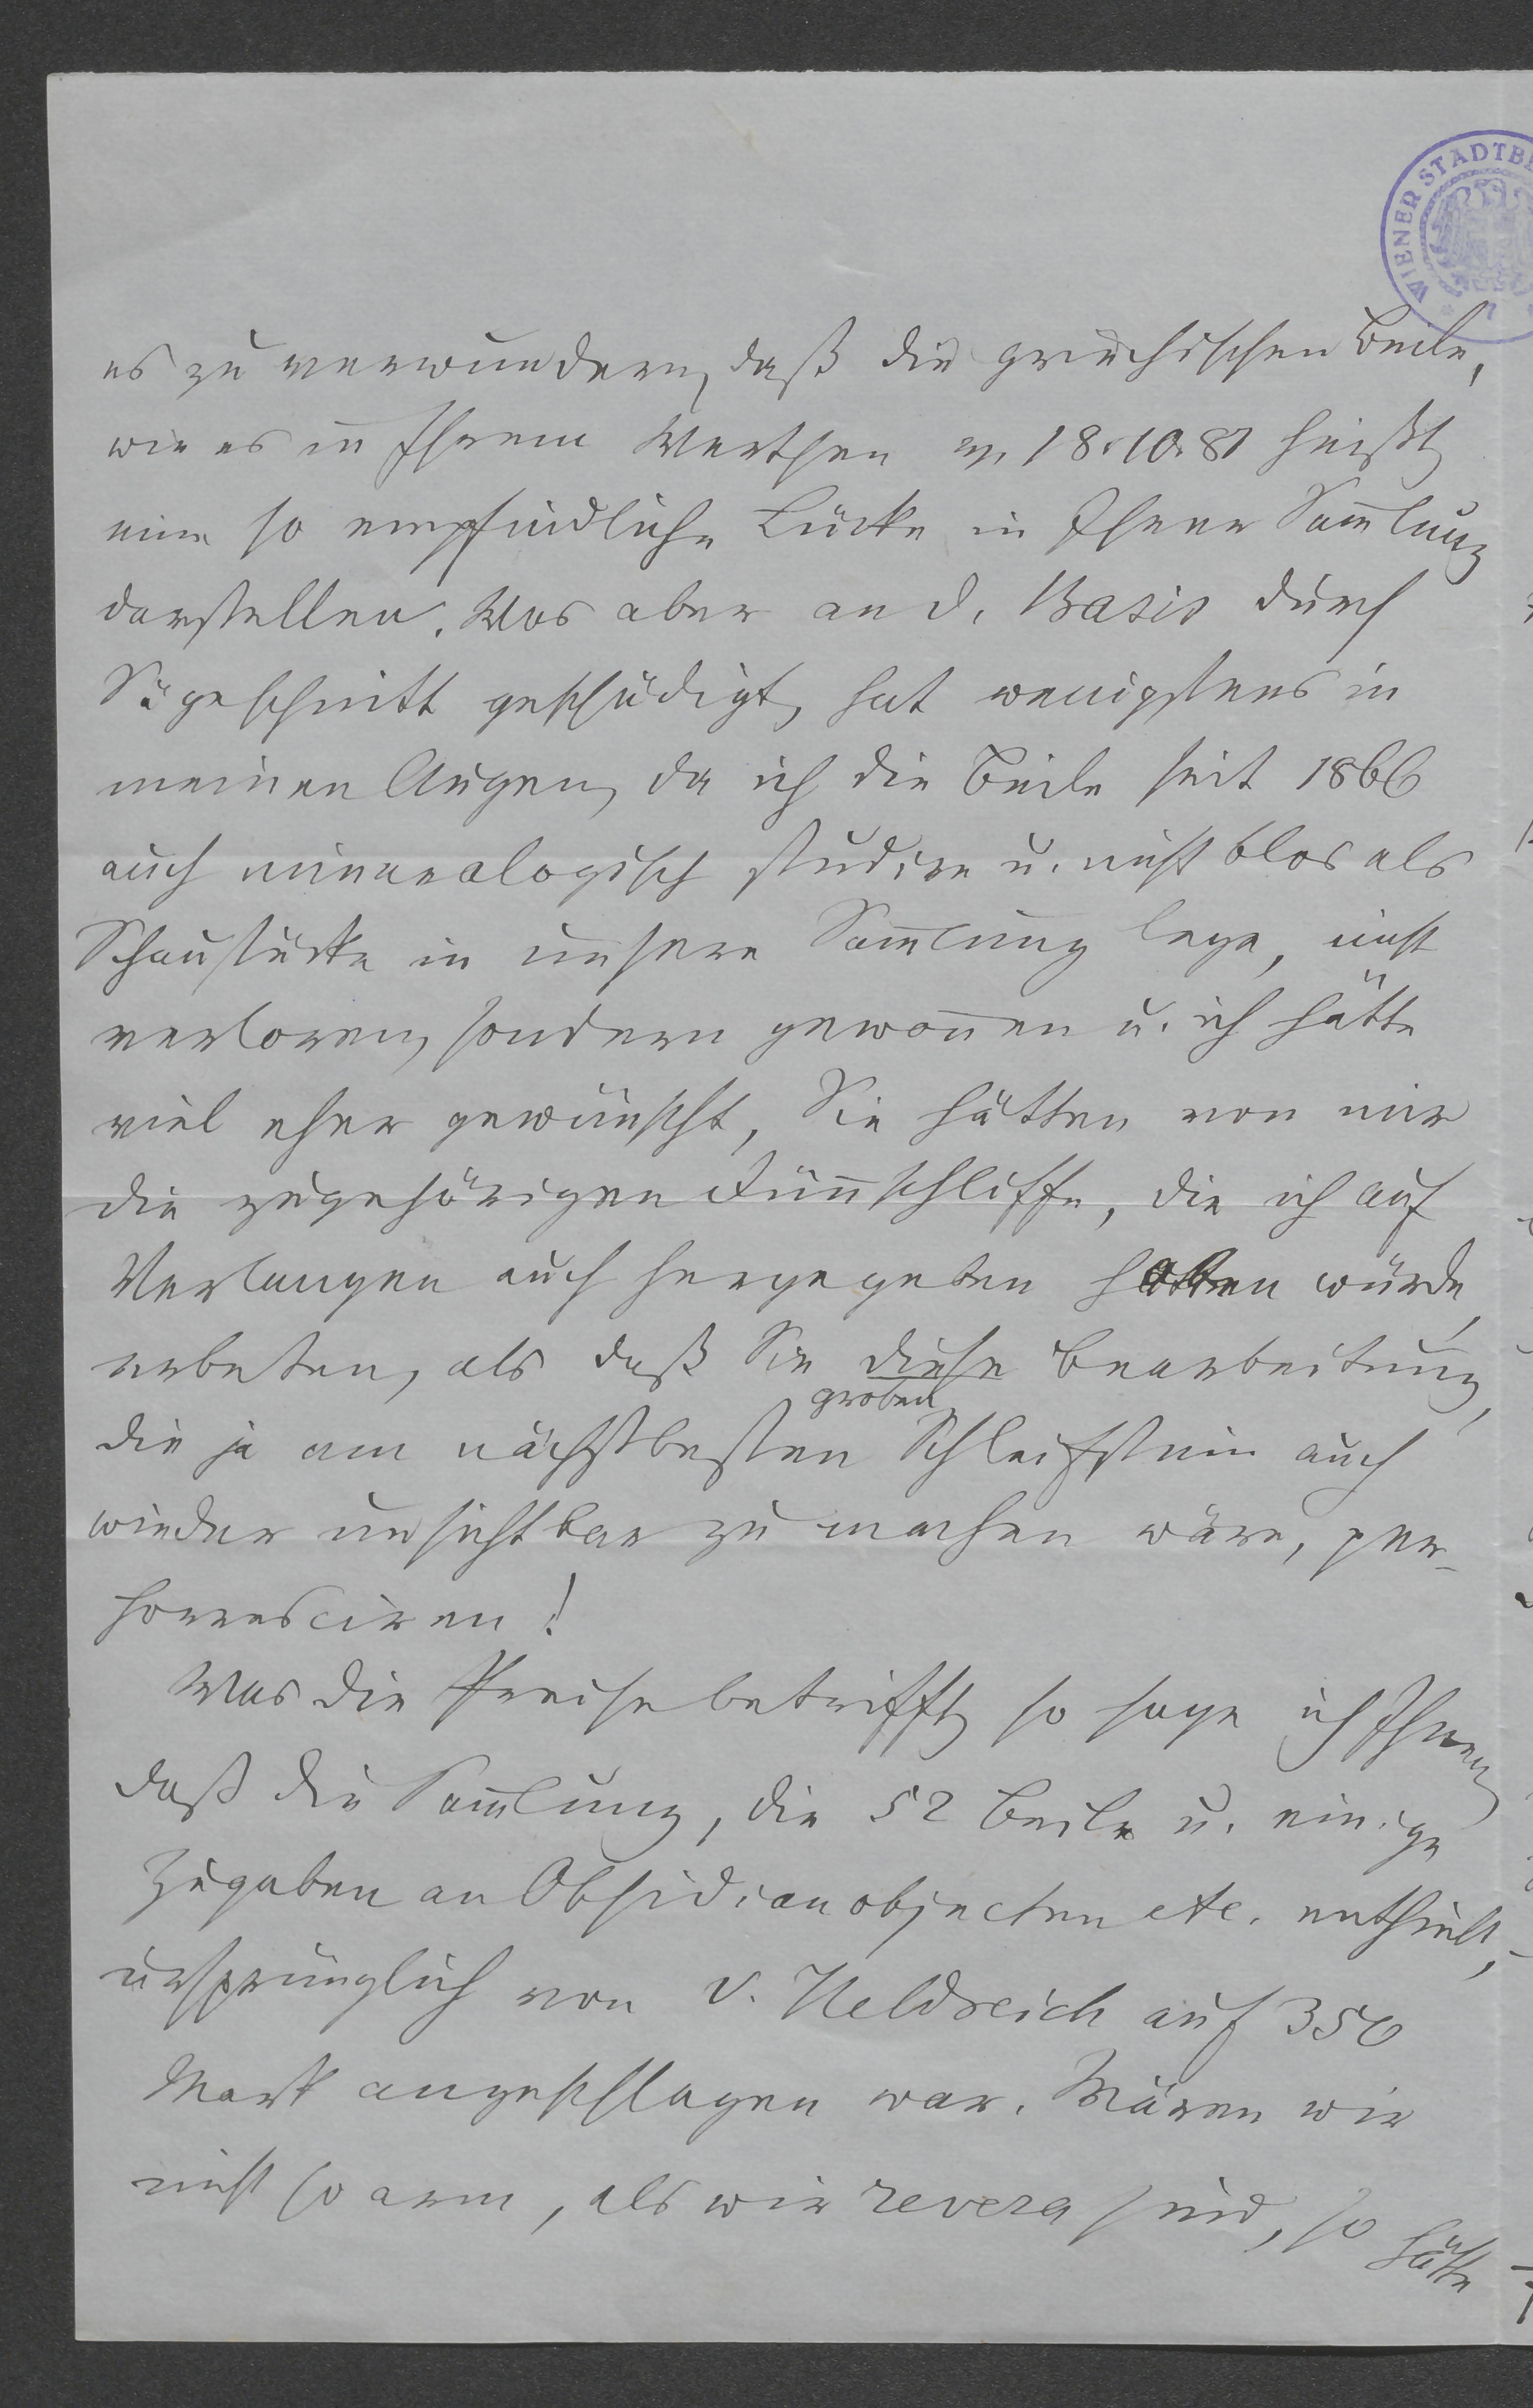 WIENER STADTB
es zu verwundern, daß die griechischen Beile,
wie es in Ihrem Werthen v. 18.10.81 heißt,
eine so empfindliche Lücke in Ihrer Sam̄lung
darstellen. Was aber an d. Basis durch
Sägeschnitt geschädigt, hat wenigstens in
meinen Augen, da ich die Beile seit 1866
auch mineralogisch studire u. nicht blos als
Schaustücke in unsere Sam̄lung lege, nicht
verloren, sondern gewon̄en u. ich hätte
viel eher gewünscht, Sie hätten von mir
die zugehörigen Dün̄schliffe, die ich auf
Verlangen auch hergegeben haben würde,
erbeten, als daß Sie diese Bearbeitung,
groben
die ja am nächstbesten Schleifstein auch
wieder unsichtbar zu machen wäre, per-
horresciren!
Was die Preise betrifft, so sage ich Ihnen,
daß die Sam̄lung, die 52 Beile u. einige
Zugaben an Obsidianobjecten etc. enthielt,
ursprünglich von v. Heldreich auf 350
Mark angeschlagen war. Wären wir
nicht so arm, als wir revera sind, so hätte